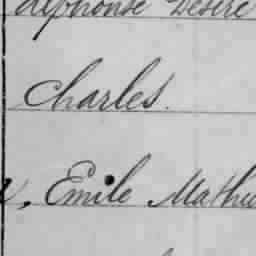 Alphonse Désiré
Charles.
Emile Mathieu